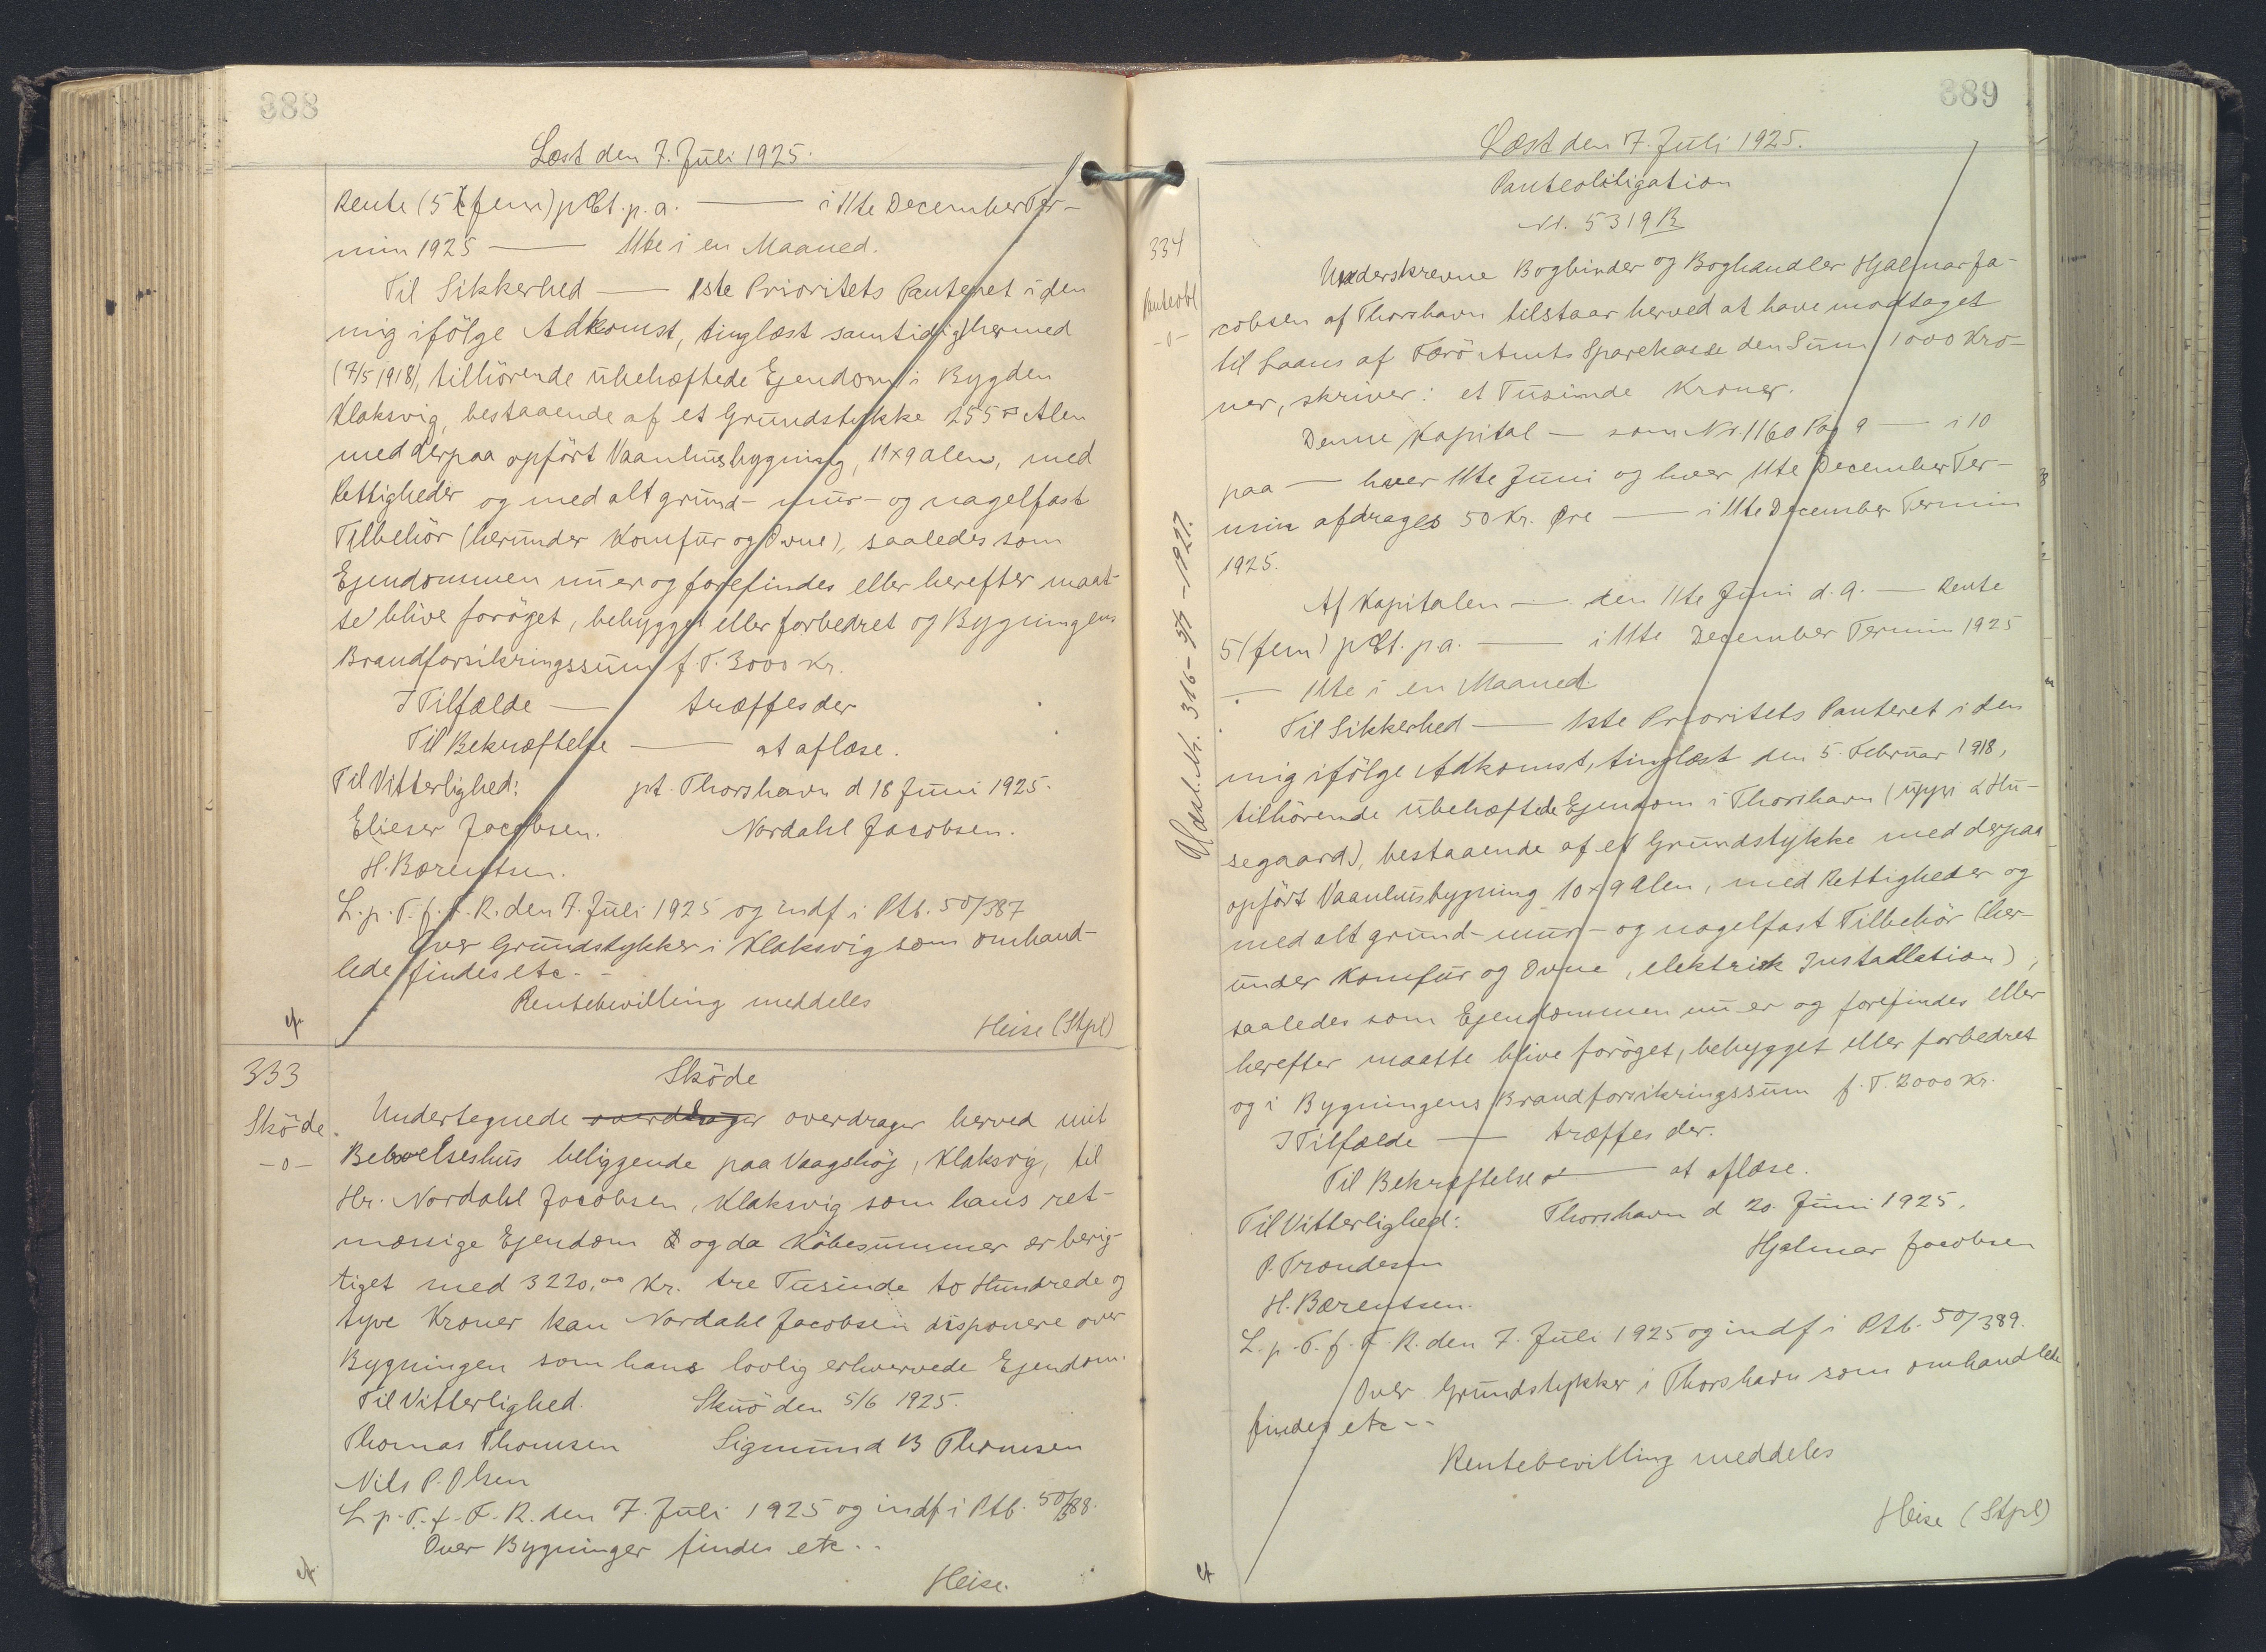 388
Læst den 7. Juli 1925.
Rente (5 (fem) pCt. p. a. — i 11te December Ter-
min 1925 — 11te i en Maaned.
Til Sikkerhed — 1ste Prioritets Panteret i den
mig ifölge Adkomst, tinglæst samtidig hermed
(7/5 1918), tilhörende ubehæftede Ejendom i Bygden
Klaksvig, bestaaende af et Grundstykke 255 □ Alen
med derpaa opfört Vaanhusbygning, 11×9 alen, med
Rettigheder og med alt grund- mur- og nagelfast
Tilbehör (herunder Komfur og Ovne), saaledes som
Ejendommen nu er og forefindes eller herefter maat-
te blive foröget, bebygget eller forbedret og Bygningens
Brandforsikringssum f. T. 3000 Kr.
I Tilfælde — træffes der
Til Bekræftelse — at aflæse.
Til Vitterlighed: pt. Thorshavn d 18 Juni 1925.
Elieser Jacobsen. Nordahl Jacobsen.
H. Bærentsen.
L. p. T. f. F. R. den 7. Juli 1925 og indf i Ptb. 50/387
Over Grundstykker i Klaksvig som omhand-
lede findes etc. -
Rentebevilling meddeles
Heise (Stpl)
333
Sköde
-o-
Sköde
Undertegnede overdrager overdrager herved mit
Beboelseshus beliggende paa Vaagshöj, Klaksvig, til
Hr. Nordahl Jacobsen, Klaksvig som hans ret-
mæssige Ejendom og da Köbesummer er berig-
tiget med 3220,00 Kr. tre Tusinde to Hundrede og
tyve Kroner kan Nordahl Jacobsen disponere over
Bygningen som hans lovlig erhvervede Ejendom.
Til Vitterlighed. Skuö den 5/6 1925.
Thomas Thomsen Sigmund B Thomsen
Nils P. Olsen
L. p. T. f. F. R. den 7. Juli 1925 og indf i Ptb. 50/388.
Over Bygninger findes etc. -
Heise.
389
Læst den 7. Juli 1925.
Panteobligation
Nr. 5319 B
334
Panteobl
-o-
Underskrevne Bogbinder og Boghandler Hjalmar Ja-
cobsen af Thorshavn tilstaar herved at have modtaget
til Laans af Færö Amts Sparekasse den Sum 1000 Kro-
ner, skriver: et Tusinde Kroner.
Denne Kapital — som Nr. 1160 Pag 9 — i 10
paa — hver 11te Juni og hver 11te December Ter-
min afdrages 50 Kr. Øre — i 11te December Termin
1925.
Af Kapitalen — den 11te Juni d. A. — Rente
5 (fem) pCt. p. a. — i 11te December Termin 1925
— 11te i en Maaned.
Til Sikkerhed — 1ste Prioritets Panteret i den
mig ifölge Adkomst, tinglæst den 5. Februar 1918,
tilhörende ubehæftede Ejendom i Thorshavn (uppi á Hu-
segaard), bestaaende af et Grundstykke med derpaa
opfört Vaanhusbygning 10×9 Alen, med Rettigheder og
med alt grund- mur- og nagelfast Tilbehör (her-
under Komfur og Ovne, elektrisk Installation),
saaledes som Ejendommen nu er og forefindes eller
herefter maatte blive foröget, bebygget eller forbedret
og i Bygningens Brandforsikringssum f. T. 2000 Kr.
I Tilfælde — træffes der.
Til Bekræftelse — at aflæse.
Til Vitterlighed: Thorshavn d 20. Juni 1925.
P. Trondesen Hjalmar Jacobsen
H. Bærentsen.
L. p. T. f. F. R. den 7. Juli 1925 og indf i Ptb. 50/389.
Over Grundstykker i Thorshavn som omhandlede
findes etc - -
Rentebevilling meddeles
Heise (Stpl)